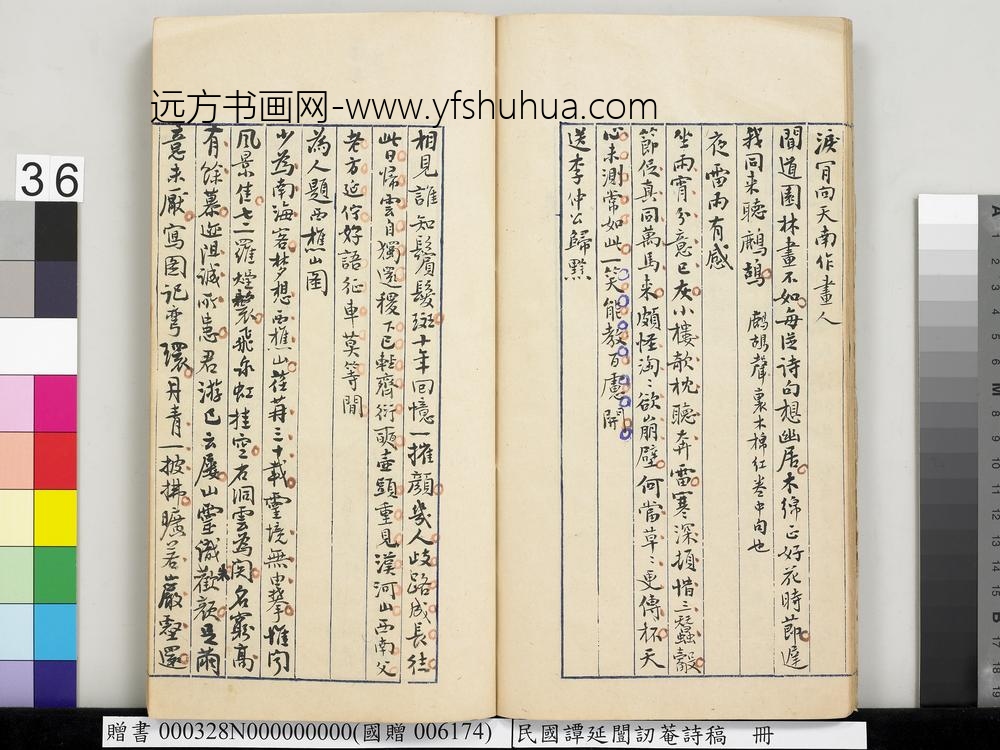 远方书画网-www.yfshuhua.com
36
淚眥向天南作畫人
聞道園林畫不如每從詩句想幽居木綿正好花時節遲
我同來聽鷓鴣 鷓鴣聲裏木棉紅卷中句也
夜雷雨有感
坐雨宵分意已灰小樓欹枕聽奔雷寒深頓惜三蠶縠
節促真同萬馬來頗怪洶〻欲崩壁何當草〻更傳杯天
心未測常如此一笑能教百慮開
送李仲公歸黔
相見誰知鬢髮斑十年回憶一摧顏幾人歧路成長往
此日歸雲自獨還稷下已輕齊衍奭壺頭重見漢河山西南父
老方延佇好語征車莫等閒
為人題西樵山圖
少為南海客夢想西樵山荏苒三十載靈境無由攀惟聞
風景佳七二羅煙鬟飛泉虹挂空石洞雲為關名賢高
有餘慕遊阻誠所患君游已云屢山靈識歡顏足繭
意未厭寫圖記彎環丹青一披拂曠若巖壑還
贈書 000328N000000000(國贈 006174) 民國譚延闓訒菴詩稿 冊